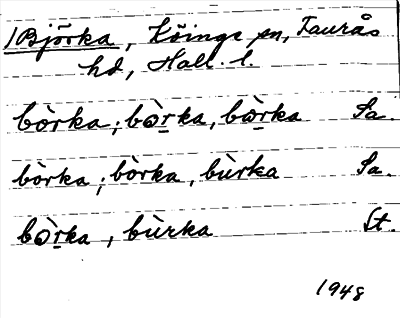 1Björka, Köinge sn, Faurås
hd, Hall. l.
bòrka; bɔ̀rka, bɔ̀rka Sa.
bòrka; bòrka, bùrka Sa.
bɔ̀rka, bùrka St.
1948